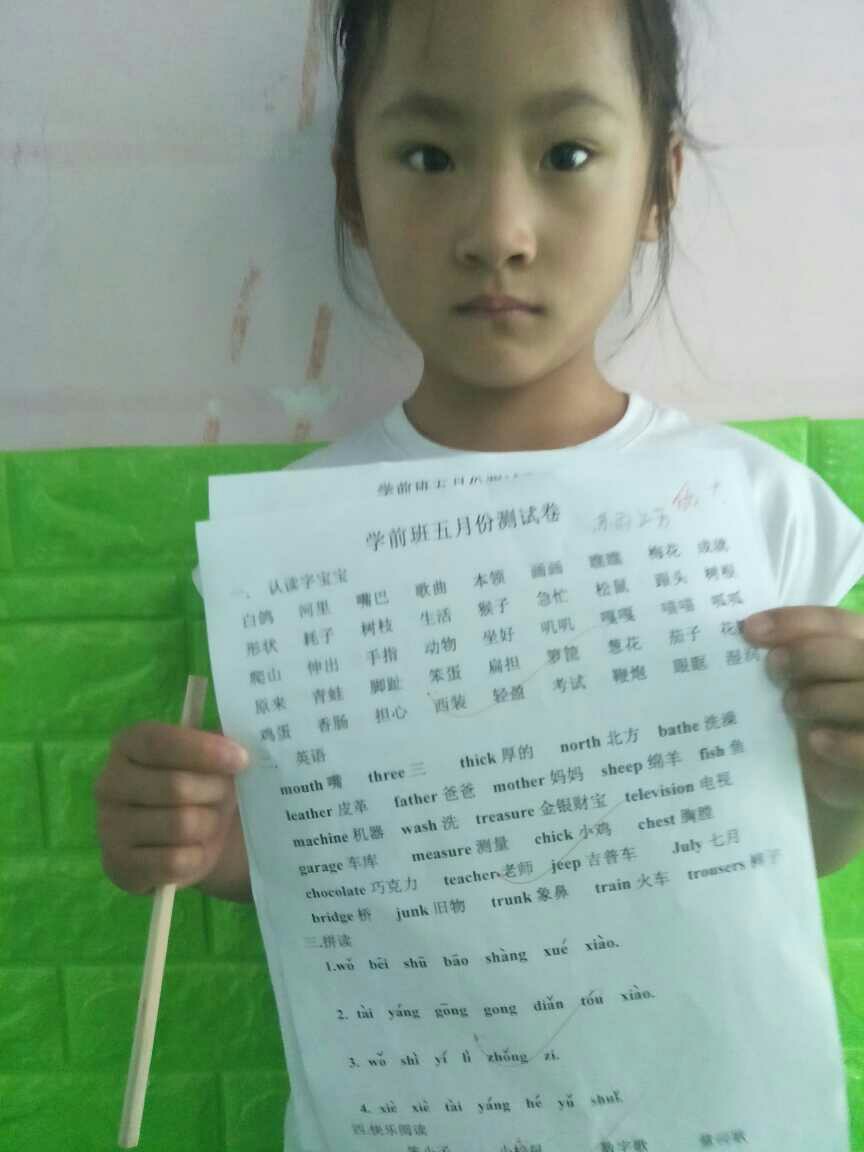 学前班五月份测试卷
一、认读字宝宝
白鸽 河里 嘴巴 歌曲 本领 画画 瞧瞧 梅花 成就
形状 耗子 树枝 生活 猴子 急忙 松鼠 蹄头 树根
爬山 伸出 手指 动物 坐好 叽叽 嘎嘎 喵喵 呱呱
原来 青蛙 脚趾 笨蛋 扁担 箩筐 葱花 茄子
鸡蛋 香肠 担心 西装 轻盈 考试 鞭炮 眼眶 湿润
二、英语
mouth 嘴 three 三 thick 厚的 north 北方 bathe 洗澡
leather 皮革 father 爸爸 mother 妈妈 sheep 绵羊 fish 鱼
machine 机器 wash 洗 treasure 金银财宝 television 电视
garage 车库 measure 测量 chick 小鸡 chest 胸膛
chocolate 巧克力 teacher 老师 jeep 吉普车 July 七月
bridge 桥 junk 旧物 trunk 象鼻 train 火车 trousers 裤子
三.拼读
1.wǒ bēi shū bāo shàng xué xiào.
2. tài yáng gōng gong diǎn tóu xiào.
3. wǒ shì yí lì zhǒng zi.
4. xiè xiè tài yáng hé yǔ shuǐ
四.快乐阅读
数字歌